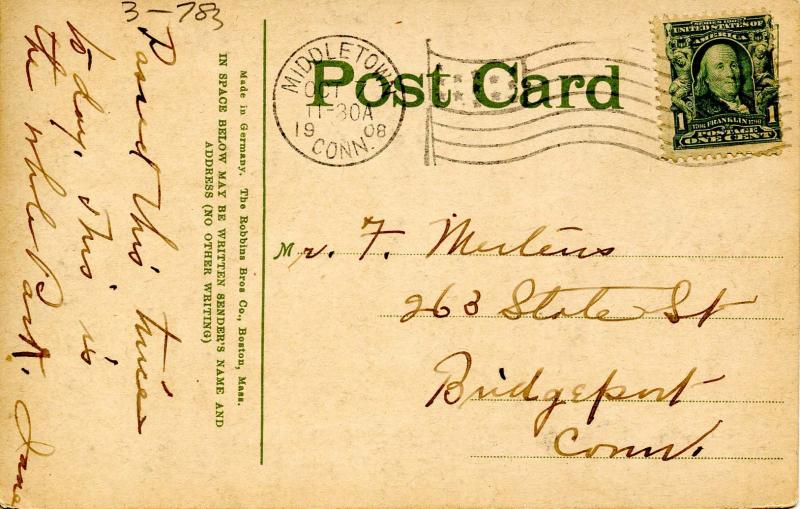 3-783
Passed this twice
to day, this is
the whole Park. Jane
Made in Germany. The Robbins Bros Co., Boston, Mass.
IN SPACE BELOW MAY BE WRITTEN SENDER'S NAME AND
ADDRESS (NO OTHER WRITING)
Post Card
MIDDLETOWN
OCT
11-30A
19 08
CONN.
SERIES 1902
UNITED STATES OF
AMERICA
1 FRANKLIN 1
POSTAGE
ONE CENT
Mr. F. Mertens
263 State St
Bridgeport
Conn.